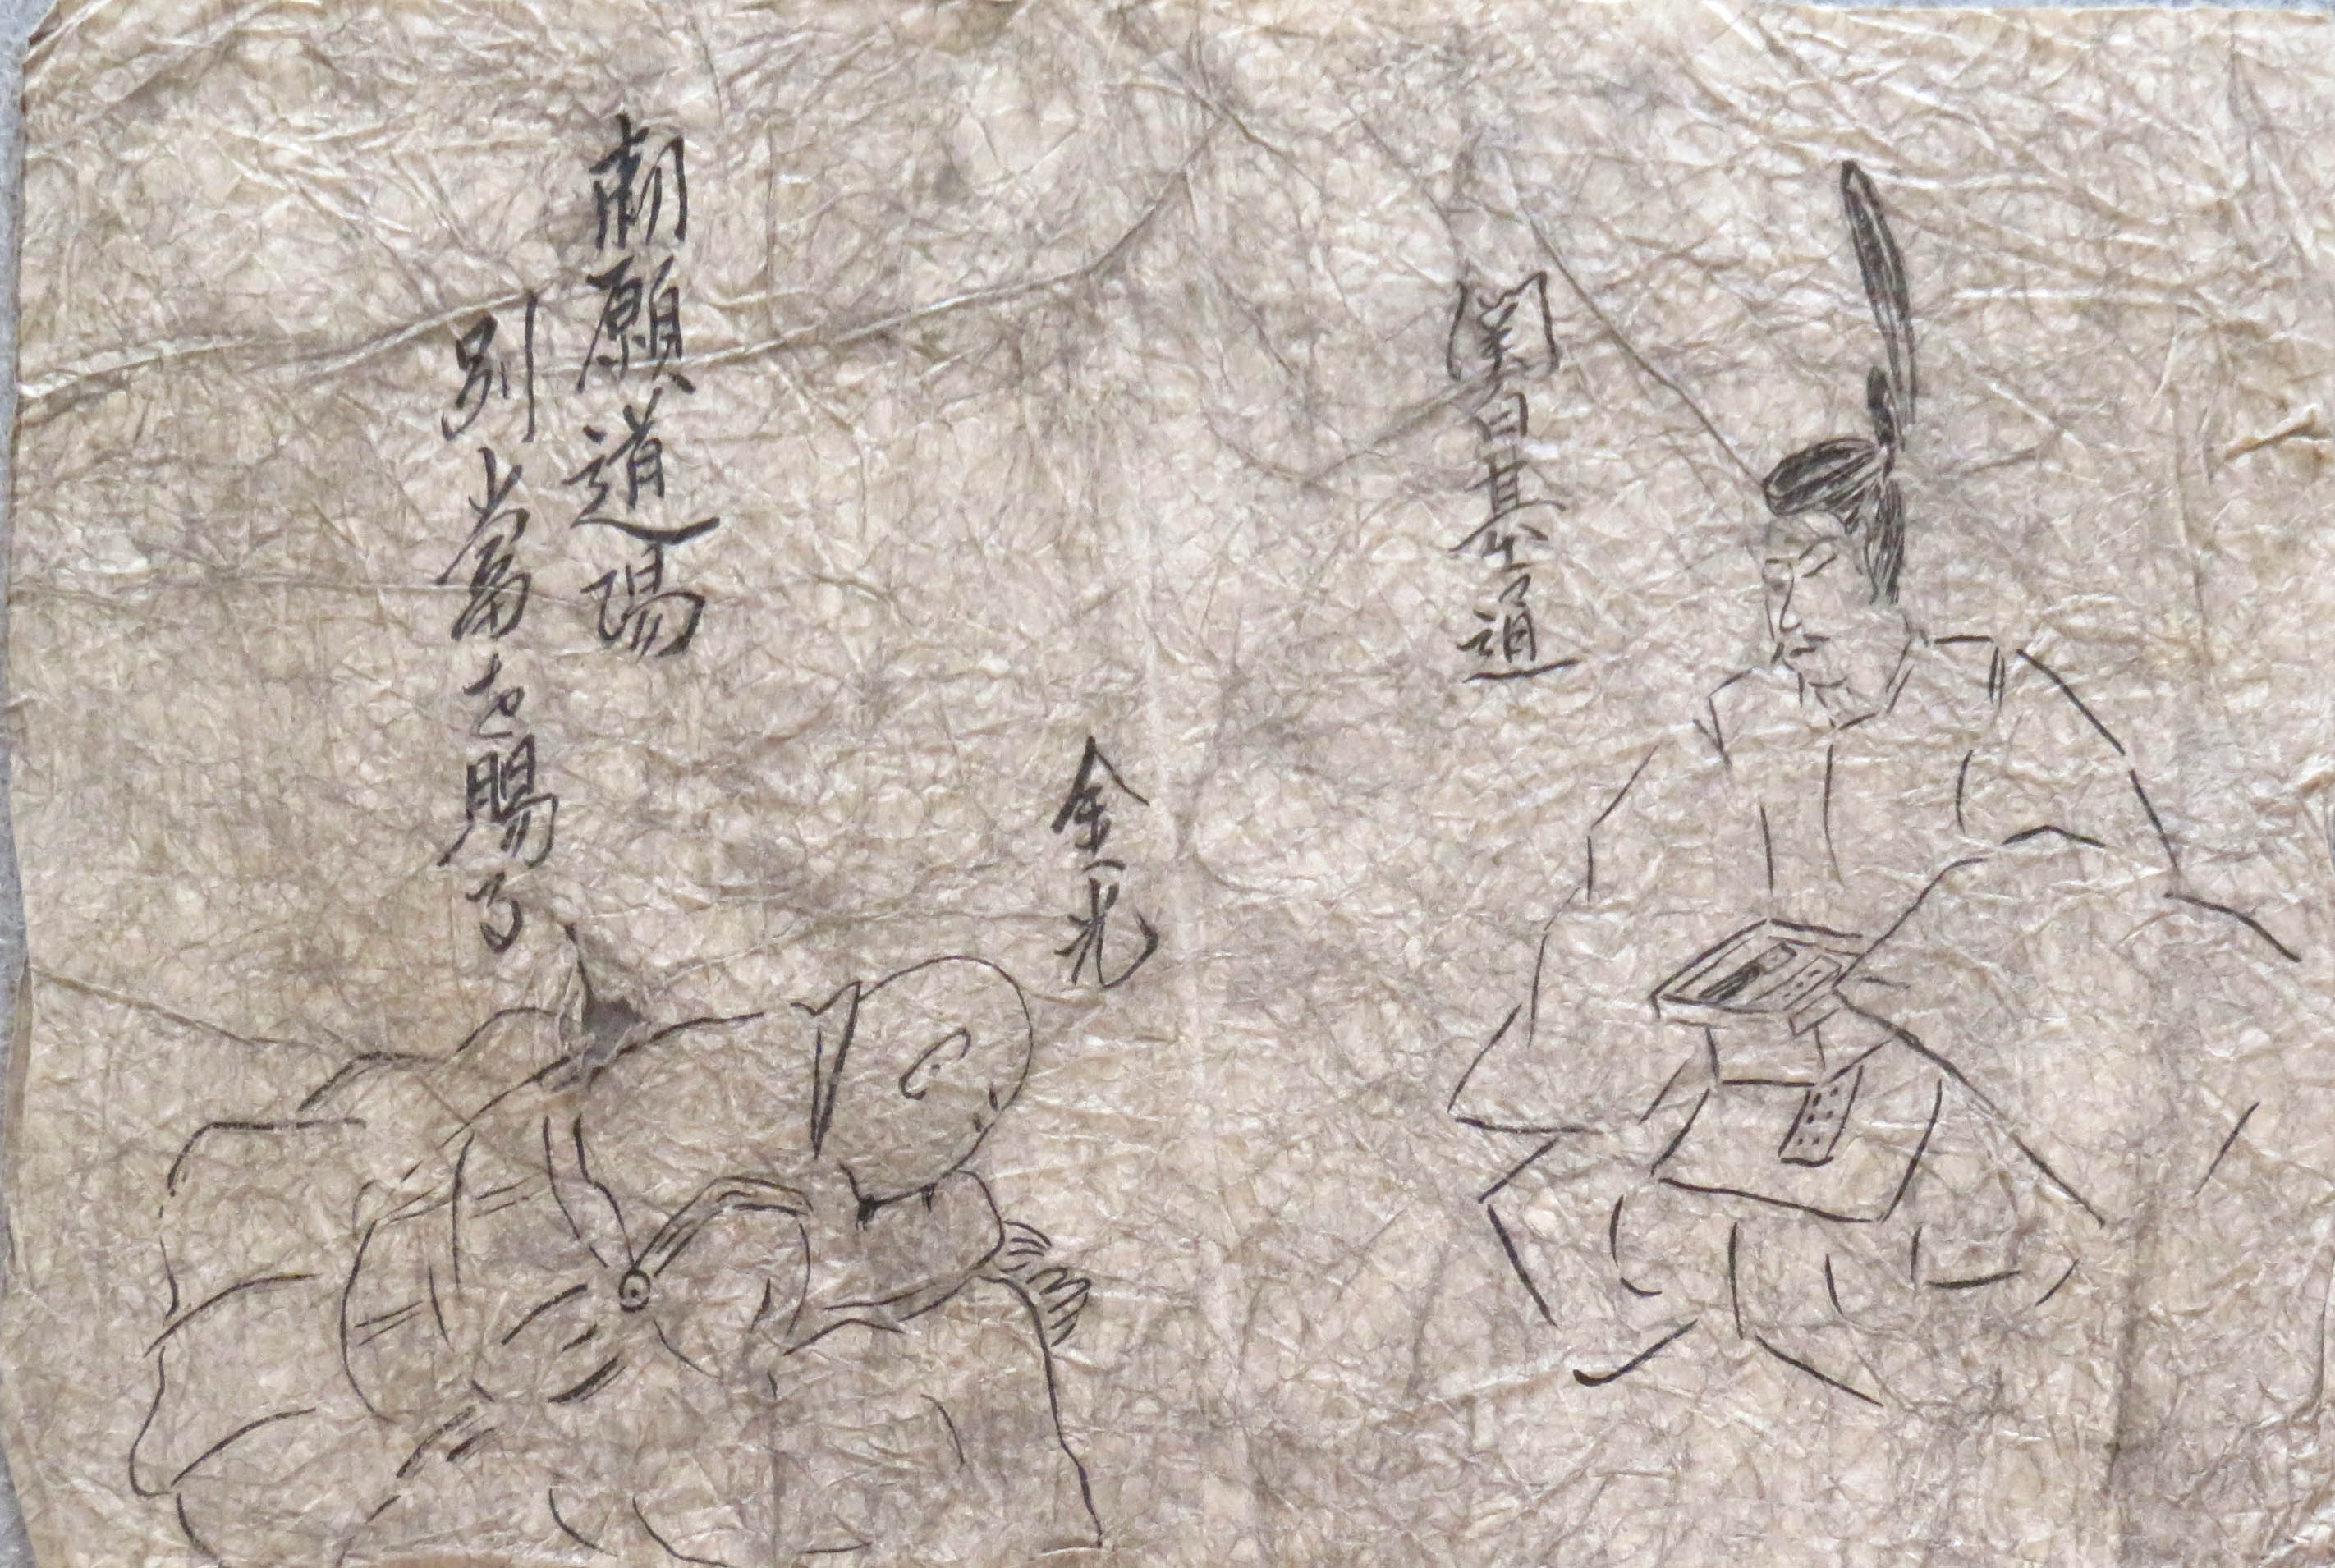 関白基通
金光
勅願道場
別當を賜る